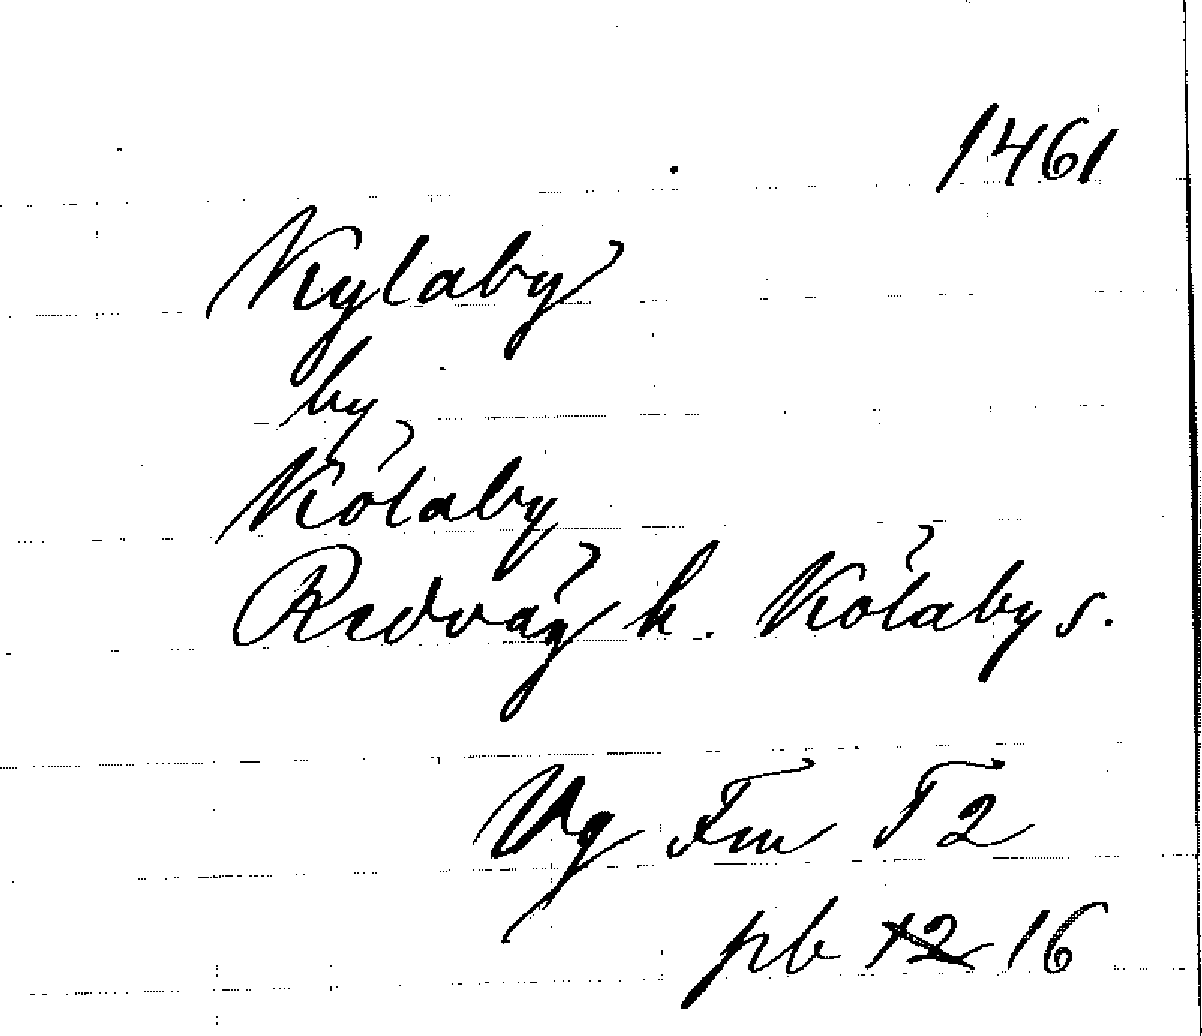 1461
Kylaby
by
Kölaby
Redväg h. Kölaby s.
Vg Fm T2
pb 12 16